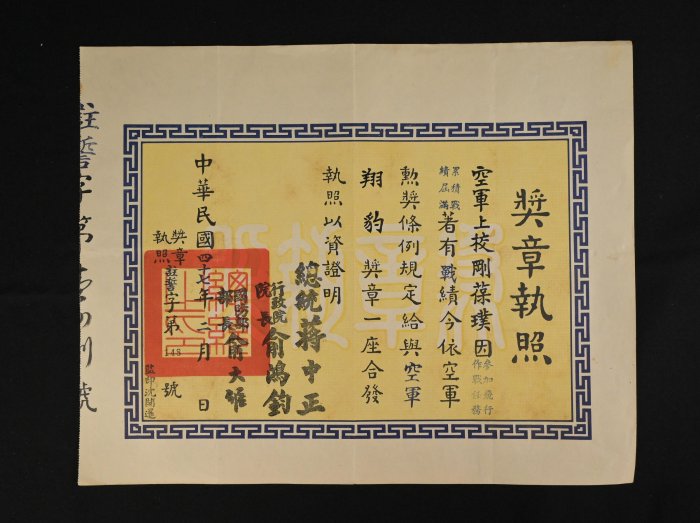 獎章執照
空軍上校剛葆璞因參加飛行作戰任務
累積戰績屆滿著有戰績今依空軍
勲獎條例規定給與空軍
翔豹獎章一座合發
執照以資證明
總統蔣中正
行政院院長俞鴻鈞
國防部部長俞大維
中華民國四十七年二月 日
獎章執照 字第 148 號
字第 號